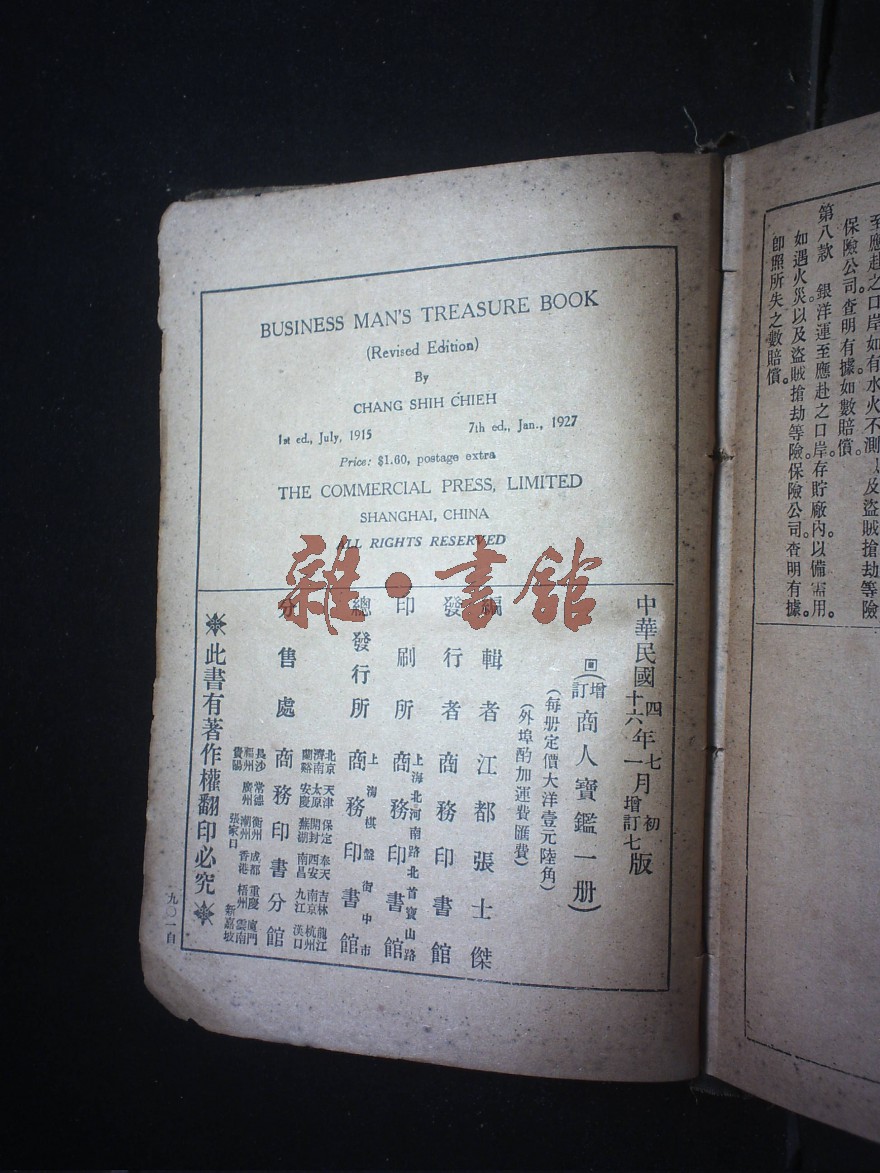 BUSINESS MAN'S TREASURE BOOK
(Revised Edition)
By
CHANG SHIH CHIEH
1st ed., July, 1915
7th ed., Jan., 1927
Price: $1.60, postage extra
THE COMMERCIAL PRESS, LIMITED
SHANGHAI, CHINA
ALL RIGHTS RESERVED
雜·書館
中華民國
四年七月初
十六年一月增訂七
版
回(增訂商人寶鑑一册)
(每册定價大洋壹元陸角)
(外埠酌加運費匯費)
編輯者 江都張士傑
發行者 商務印書館
印刷所 商務印書館
上海北河南路北首寶山路
總發行所 商務印書館
上海棋盤街中市
分售處 商務印書分館
北京 天津 保定 奉天 吉林 龍江
濟南 太原 開封 西安 南京 杭州
蘭谿 安慶 蕪湖 南昌 九江 漢口
長沙 常德 衡州 成都 重慶 廈門
福州 廣州 潮州 香港 梧州 雲南
貴陽 張家口 新嘉坡
此書有著作權翻印必究
九〇一自
至應赴之口岸如有水火不測以及盜賊搶劫等險
保險公司。查明有據。如數賠償。
第八款 銀洋運至應赴之口岸。存貯廠內。以備需用。
如遇火災以及盜賊搶劫等險。保險公司。查明有據。
卽照所失之數賠償。